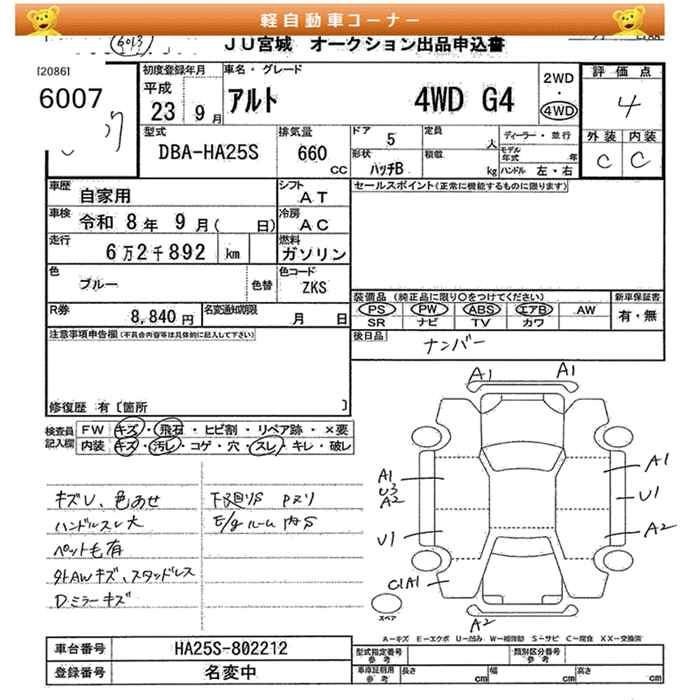 軽自動車コーナー
JU宮城 オークション出品申込書
[2086]
6007
初度登録年月
平成
23 9月
車名・グレード
アルト 4WD G4
2WD
・
4WD
評価点
4
外装 内装
C C
型式
DBA-HA25S
排気量
660
CC
ドア
5
定員
人
形状
ハッチB
積載
kg
ディーラー・並行
モデル年式 年
ハンドル 左・右
車歴
自家用
シフト
AT
セールスポイント(正常に機能するものに限ります)
車検
令和 8年 9月( 日)
冷房
AC
走行
6万2千892 km
燃料
ガソリン
色
ブルー
色替
色コード
ZKS
R券
8,840円
名変通知期限
月 日
装備品 (純正品に限り○をつけてください)
新車保証書
PS PW ABS エアB AW
SR ナビ TV カワ
有・無
注意事項申告欄(不具合内容等は具体的に記入して下さい)
後日品
ナンバー
修復歴 有〔箇所 〕
検査員
記入欄
FW キズ・飛石・ヒビ割・リペア跡・×要
内装 キズ・汚レ・コゲ・穴・スレ・キレ・破レ
キズU、色あせ
ハンドルスレ大
ペット毛有
外AWキズ、スタッドレス
Dミラーキズ
下廻りS Pヌリ
E/gルーム内S
A1 A1
A1
U3
A2
U1
C1A1
A1
U1
A2
A2
スペア
A-キズ E-エクボ U-凹み W-補修跡 S-サビ C-腐食 XX-交換済
車台番号
HA25S-802212
登録番号
名変中
型式指定番号
参考
類別区分番号
参考
車庫証明用
参考
長さ cm 幅 cm 高さ cm